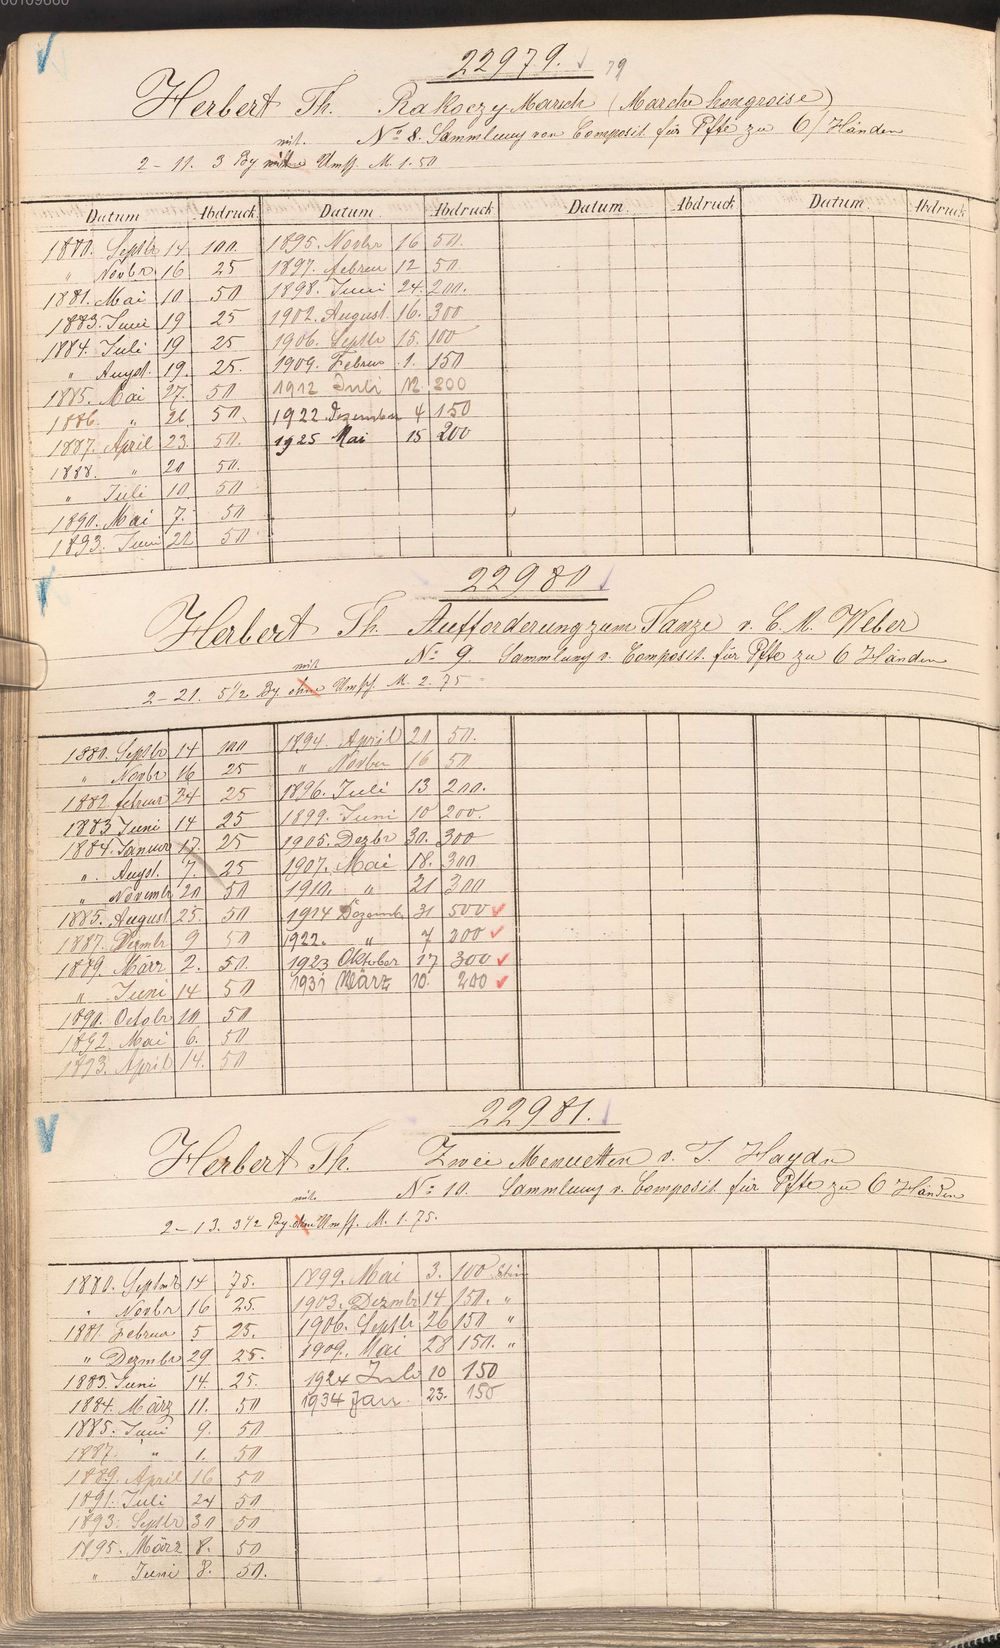 22979. 79
Herbert Th. Rakoczy Marsch (Marche hongroise)
No 8. Sammlung von Composit. für Pfte zu 6/Händen
mit.
2 - 11. 3 Bg Umss. M. 1.50
Datum Abdruck Datum Abdruck Datum. Abdruck Datum. Abdruck
1880. Septbr 14 100. 1895. Novbr 16 50.
" Novbr. 16 25 1897. Februr 12 50
1881. Mai 10. 50 1898. Juni 24. 200.
1883. Juni 19 25 1902. August 16. 300
1884. Juli 19 25 1906. Septbr 15. 100
" August. 19. 25. 1909. Februr 1. 150
1885. Mai 27. 50 1912 Juli 12. 200
1886. " 21. 50. 1922 Dezember 4 150
1887. April 23. 50. 1925 Mai 15 200
1888. " 20 50.
" Juli 10. 50
1890. Mai 7. 50
1893. Juni 22 50
22980
Herbert Th. Aufforderung zum Tanze v. C. M. Weber
No 9. Sammlung v. Composit. für Pfte zu 6 Händen
mit
2 - 21. 5 1/2 Bg. ohne Umss. M. 2.75
1880. Septbr 14 100 1894. April 20 50.
" Novbr 16 25 " Novber 16 50
1882. Februar 24 25 1896. Juli 13 200.
1883 Juni 14 25 1899. Juni 10 200.
1884. Januar 17. 25 1905. Dezbr 30. 300
" August. 7. 25 1907. Mai 18. 300
" Novembr 20 50 1910. " 21 300
1885. August 25. 50 1914 Dezembr 31 500
1887. Dezmbr 9 50 1922. " 7 200
1889. März 2. 50. 1923 Oktober 17 300
" Juni 14 50 1931 März 10. 200
1890. Octobr 10 50
1892. Mai 6. 50
1893. April 14. 50
22981.
Herbert Th. Zwei Menuetten v. J. Haydn
No 10. Sammlung v. Composit. für Pfte zu 6 Händen
mit.
2 - 13. 3 1/2 Bg. ohne Umss. M. 1.75.
1880. Septmbr 14 75. 1899. Mai 3. 100
" Novbr 16 25. 1903. Dezmbr 14 150. "
1881. Februar 5 25. 1906. Septbr 26 150 "
" Dezmbr 29 25. 1909. Mai 28 150. "
1883. Juni 14. 25. 1924 Juli 10 150
1884. März 11. 50 1934 Jan. 23. 150
1885. Juni 9. 50
1887. " 1. 50
1889. April 16 50
1891. Juli 24 50
1893. Septbr 30 50
1895. März 8. 50
" Juni 8. 50.